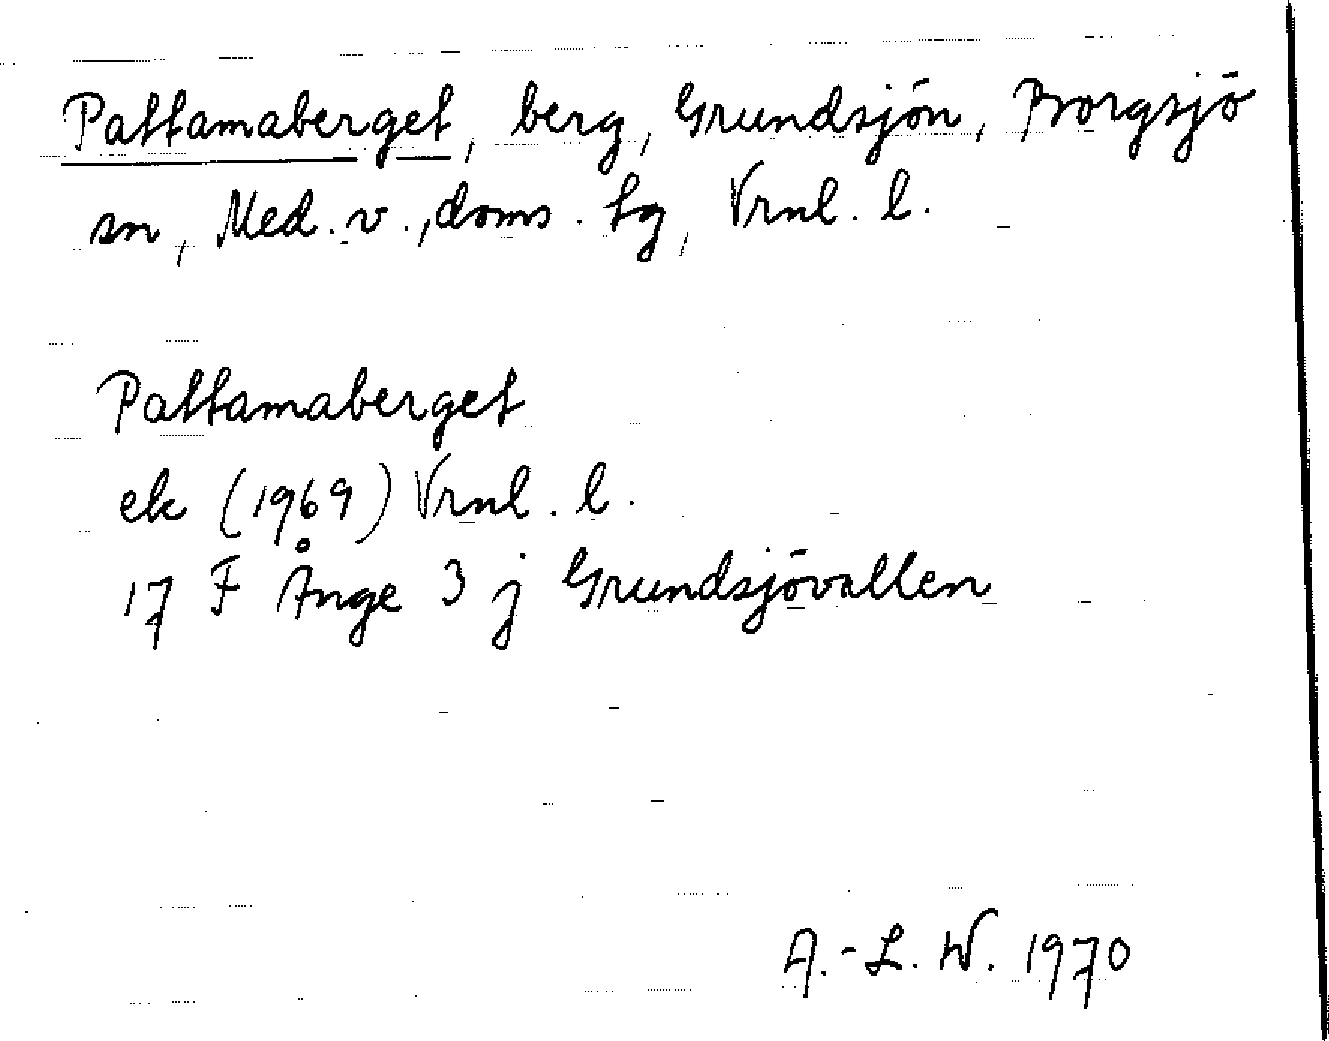 Pattamaberget, berg, Grundsjön, Borgsjö
sn, Med. v., doms. hg, Vrnl. l.
Pattamaberget
ek (1969) Vrnl. l.
17 F Ånge 3 j Grundsjövallen
A.-L. W. 1970